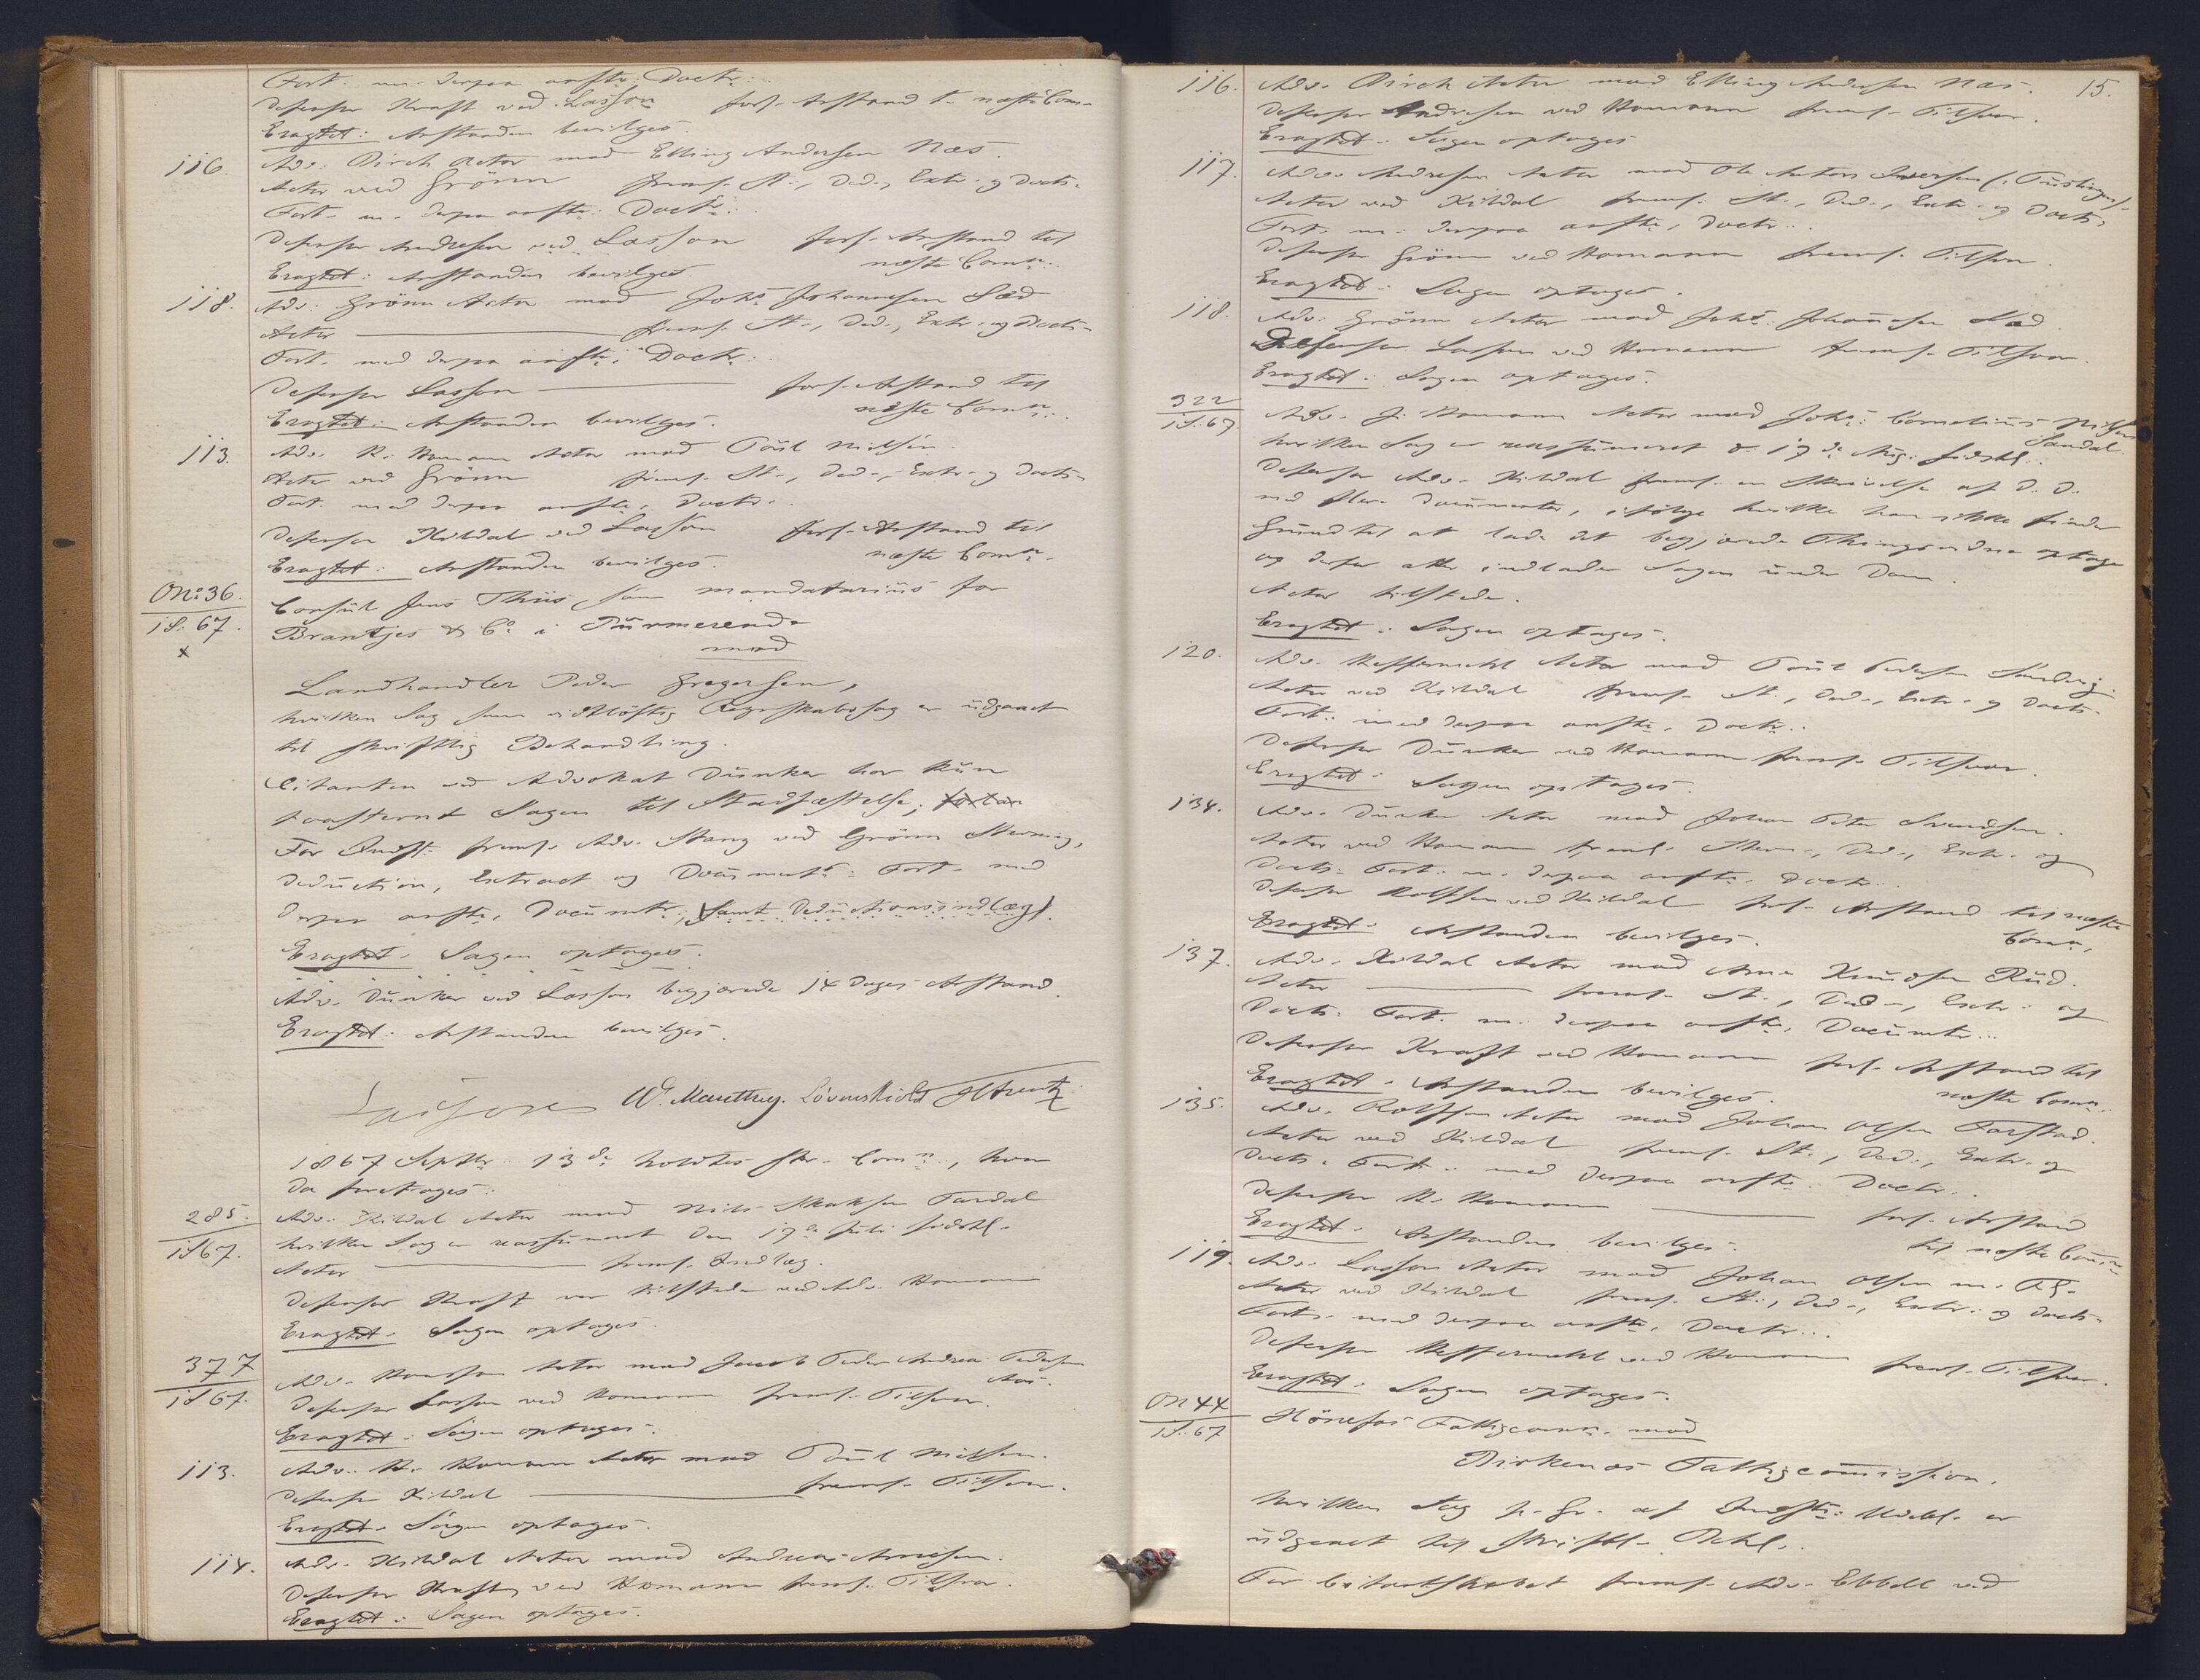 Fort. m. derpaa anfte. Doctr.
Defensor Kraft ved Lasson forl. Anstand t. næste Com.
Eragtet: Anstanden bevilges.
116. Adv. Birch Actor mod Elling Andersen Næs.
Actor ved Grönn freml. St., Ded., Extr. og Docts.
Fort. m. derpaa anfte. Doctr.
Defensor Andresen ved Lasson forl. Anstand til
næste Comn.
Eragtet: Anstanden bevilges.
118. Adv. Grönn Actor mod Johs. Johannesen Sæd
Actor freml. St., Ded., Extr. og Docts.
Fort. med derpaa anfte. Doctr.
Defensor Lasson forl. Anstand til
næste Comn.
Eragtet: Anstanden bevilges.
113. Adv. R. Homann Actor mod Poul Nielsen
Actor ved Grönn freml. St., Ded., Extr. og Docts.
Fort. med derpaa anfte. Doctr.
Defensor Kildal ved Lasson forl. Anstand til
næste Comn.
Eragtet: Anstanden bevilges.
O No. 36. Consul Jens Thiis, som mandatarius for
18.67. Brantjes & Co. i Purmerende
x
mod
Landhandler Peder Gregersen,
hvilken Sag som vidtløftig Regnskabssag er udgaaet
til skriftlig Behandling.
Citanten ved Advokat Dunker har kun
paastevnt Sagen til Stadfæstelse;
For Indst. freml. Adv. Stang ved Grönn Stevning,
Deduction, Extract og Documents. Fort. med
derpaa anfte. Documtr., samt Deductionsindlæg.
Eragtet: Sagen optages.
Adv. Dunker ved Lasson begjærede 14 Dages Anstand.
Eragtet: Anstanden bevilges.
Lasson W. Manthey. Lövenskiold
1867 Septbr. 13de holdtes Comn., hvor
da foretoges:
285. Adv. Kildal Actor mod Nils Tardal
1867. hvilken Sag er reassumeret den 17de Juli sidstl.
Actor freml. Indlæg.
Defensor Kraft var tilstede ved Adv. Homann
Eragtet: Sagen optages.
377 Adv. Actor mod Jacob Peder Andreas Pedersen
1867. Defensor Lasson ved Homann freml. Tilsvar.
Eragtet: Sagen optages.
113. Adv. R. Homann Actor mod Poul Nielsen.
Defensor Kildal freml. Tilsvar.
Eragtet: Sagen optages.
114. Adv. Kildal Actor mod Andreas Arnesen.
Defensor Kraft ved Homann freml. Tilsvar.
Eragtet: Sagen optages.
15.
116. Adv. Birch Actor mod Elling Andersen Næs.
Defensor Andresen ved Homann freml. Tilsvar.
Eragtet: Sagen optages
117. Adv. Andresen Actor mod Ole Anton Iversen
Actor ved Kildal freml. St., Ded., Extr. og Docts.
Fort. m. derpaa anfte. Doctr.
Defensor Grönn ved Homann freml. Tilsvar.
Eragtet: Sagen optages.
118. Adv. Grönn Actor mod Johs. Johannesen Sæd
Defensor Lasson ved Homann freml. Tilsvar.
Eragtet: Sagen optages.
322 Adv. J. Homann Actor mod Johs. Cornelius Nilsen
18.67. Sandal
hvilken Sag er reassumeret d. 17de Aug. sidstl.
Defensor Adv. Kildal freml. en Skrivelse af D. D.
med flere Documenter, ifølge hvilke han ikke finder
Grund til at lade det begjærede Thingsvidne optage
og derfor atter indlader Sagen under Dom.
Actor tilstede.
Eragtet: Sagen optages.
120. Adv. Heffermehl Actor mod Poul Pedersen
Actor ved Kildal freml. St., Ded., Extr. og Docts.
Fort. med derpaa anfte. Doctr.
Defensor Dunker ved Homann freml. Tilsvar.
Eragtet: Sagen optages.
134. Adv. Dunker Actor mod Johan Peter Svendsen.
Actor ved Homann freml. Stevn., Ded., Extr. og
Docts. Fort. m. derpaa anfte. Doctr.
Defensor Rolfsen ved Kildal forl. Anstand til næste
Comn.
Eragtet: Anstanden bevilges.
137. Adv. Kildal Actor mod Arne Knudsen Rud.
Actor freml. St., Ded., Extr. og
Docts. Fort. m. derpaa anfte. Documtr.
Defensor Kraft ved Homann forl. Anstand til
næste Comn.
Eragtet: Anstanden bevilges.
135. Adv. Rolfsen Actor mod Johan Olsen Farstad.
Actor ved Kildal freml. St., Ded., Extr. og
Docts. Fort. med derpaa anfte. Doctr.
Defensor R. Homann forl. Anstand
til næste Comn.
Eragtet: Anstanden bevilges.
119. Adv. Lasson Actor mod Johan Olsen m. Fl.
Actor ved Kildal freml. St., Ded., Extr. og Docts.
Fort. med derpaa anfte. Doctr.
Defensor Heffermehl ved Homann freml. Tilsvar.
Eragtet: Sagen optages.
O N 44 Hönefos Fattigcomn. mod
18.67
Birkenæs Fattigcommission.
hvilken Sag p. Gr. af Indst. Udebl. er
udgaaet til skriftl. Behl.
For Citantskabet freml. Adv. Ebbell ved